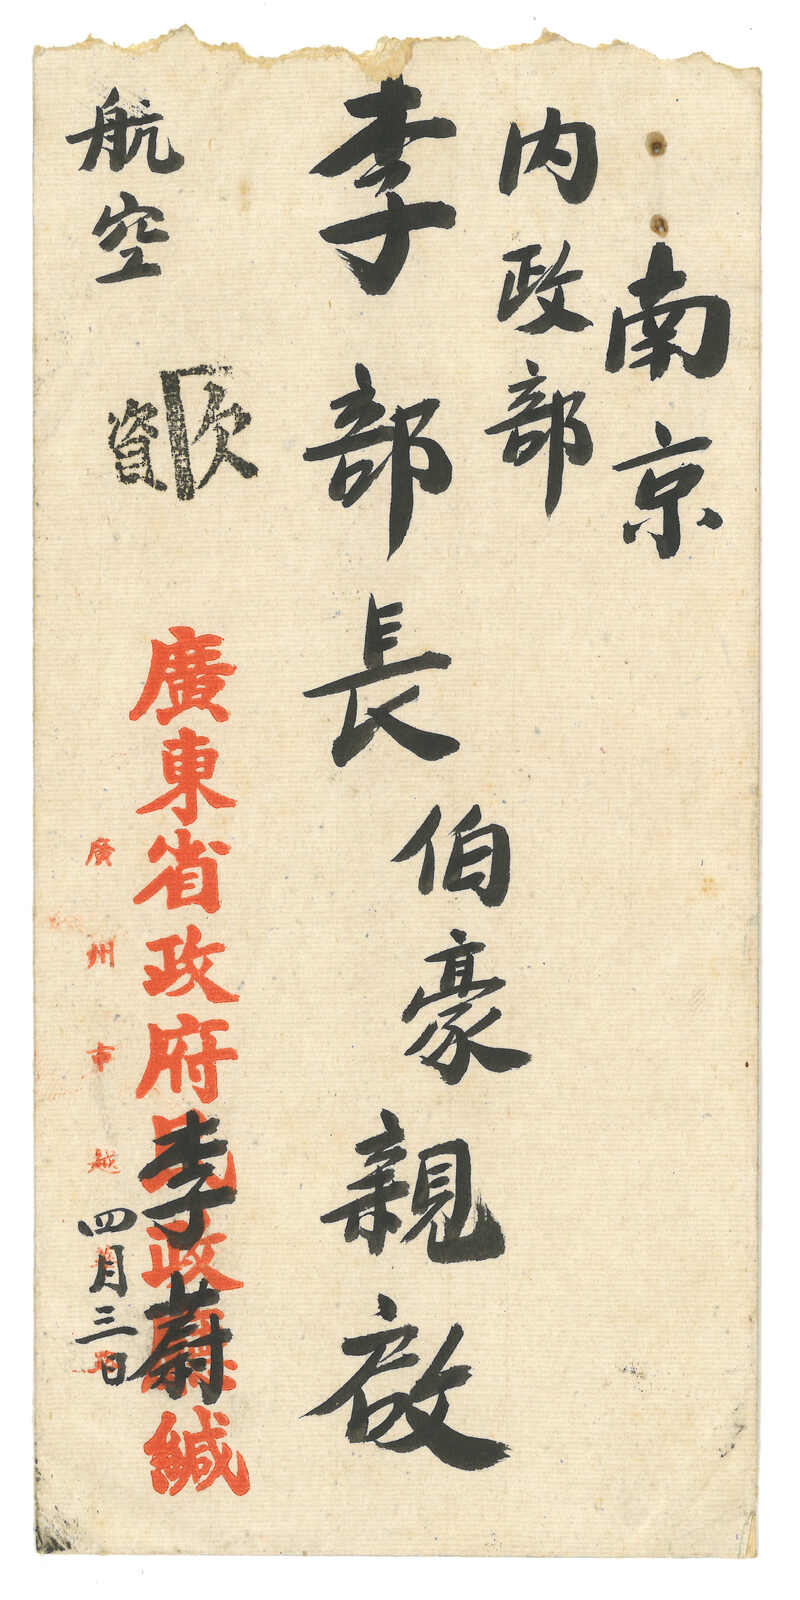 南京
内政部
李部長伯豪親啟
廣東省政府民政廳緘
李蔚
廣州市越
四月三日
航空
欠資